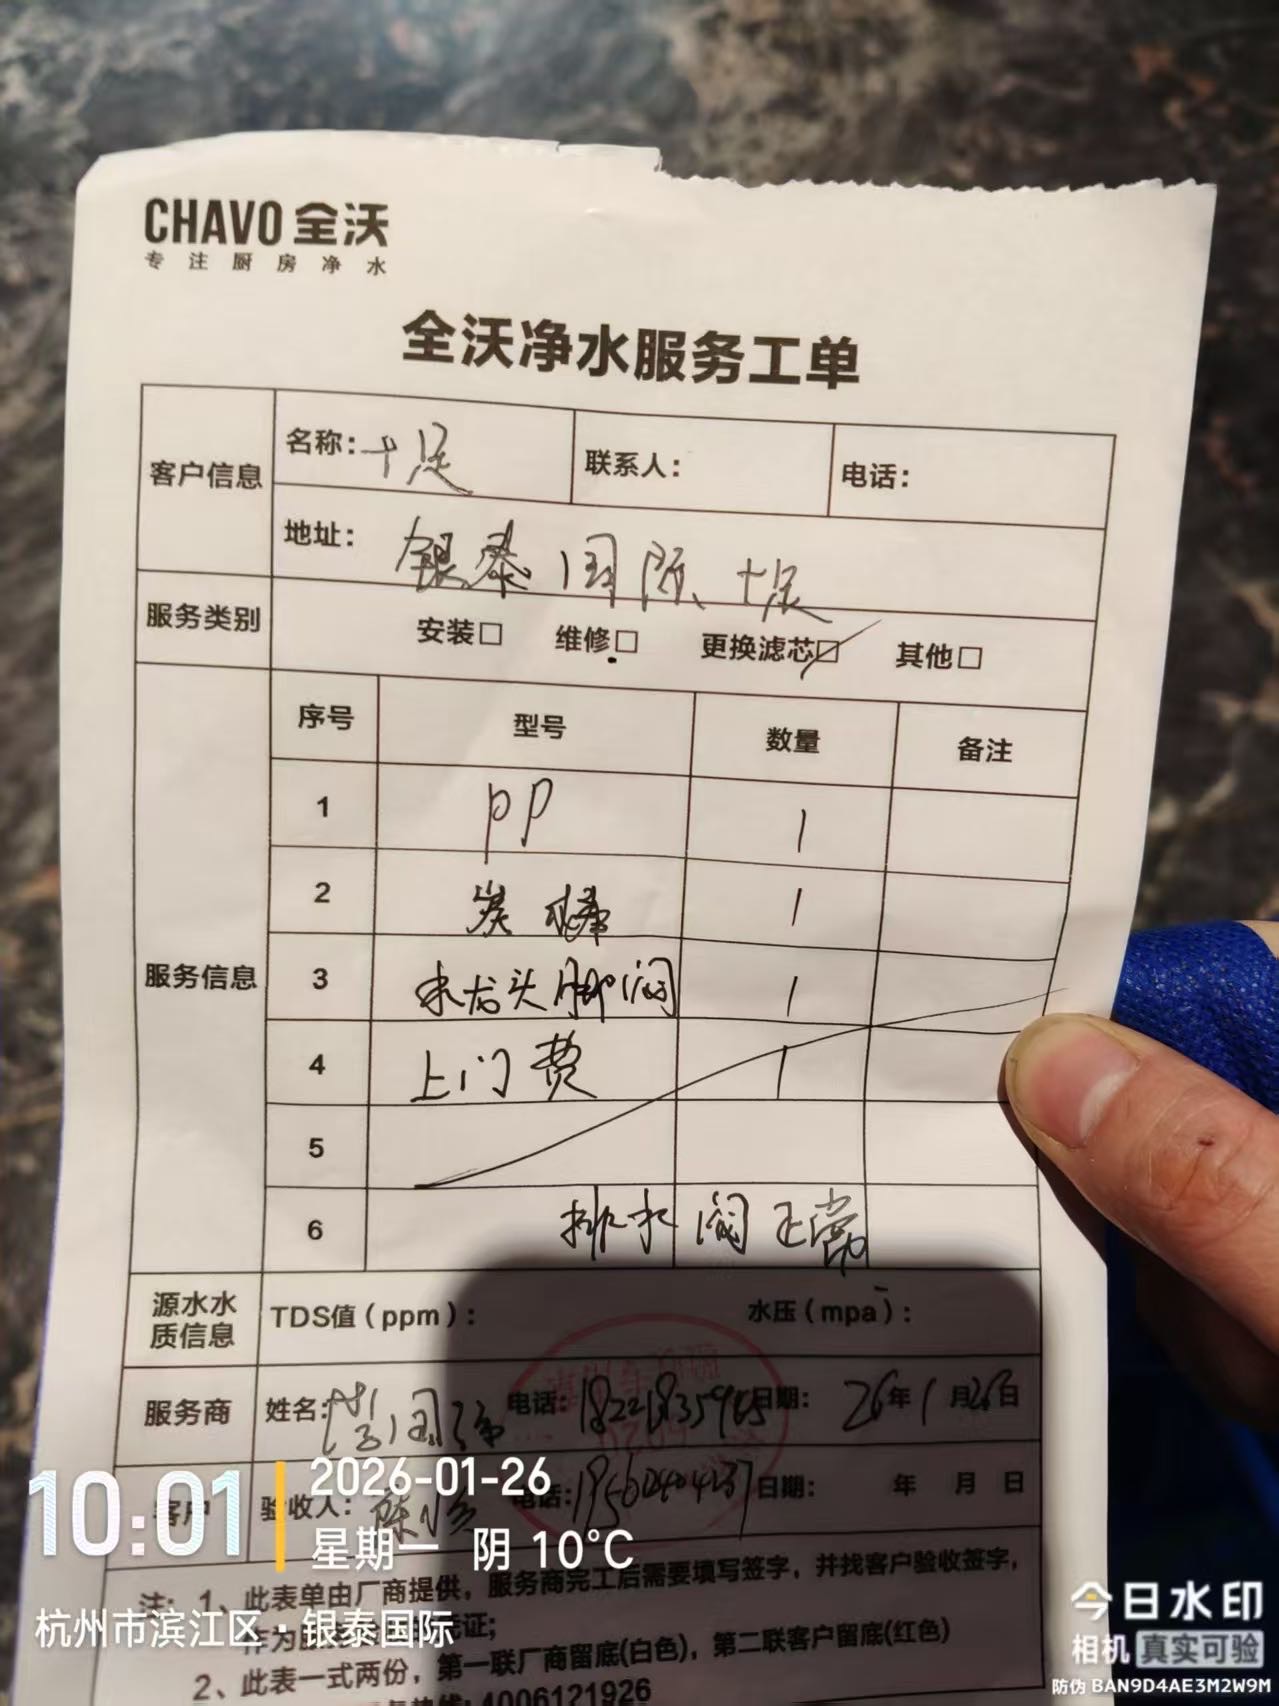 CHAVO 全沃
专注厨房净水
全沃净水服务工单
客户信息 名称: 十足 联系人: 电话:
地址: 银泰国际、十足
服务类别 安装□ 维修□ 更换滤芯☑ 其他□
服务信息 序号 型号 数量 备注
1 PP 1
2 炭棒 1
3 水龙头脚阀 1
4 上门费 1
5
6 排水阀正常
源水水质信息 TDS值(ppm): 水压(mpa):
服务商 姓名: 国强 电话: 日期: 26年1月26日
客户 验收人: 陈 电话: 日期: 年 月 日
注: 1、此表单由厂商提供,服务商完工后需要填写签字,并找客户验收签字,
作为 凭证;
2、此表一式两份,第一联厂商留底(白色),第二联客户留底(红色)
热线: 4006121926
10:01
2026-01-26
星期一 阴 10°C
杭州市滨江区·银泰国际
今日水印
相机 真实可验
防伪 BAN9D4AE3M2W9M